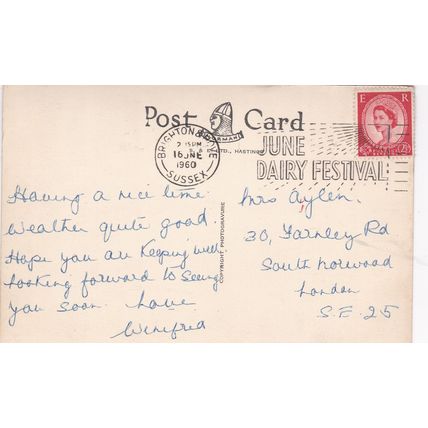 Post Card
NORMAN
LTD., HASTINGS
BRIGHTON & HOVE
2 15PM
16 JNE
1960
SUSSEX
JUNE
DAIRY FESTIVAL
E R
COPYRIGHT PHOTOGRAVURE
Having a nice time
Weather quite good
Hope you are keeping well
Looking forward to seeing
you soon. Love
Winifred
Mrs Aylen.
30, Farnley Rd
South Norwood
London
S.E. 25